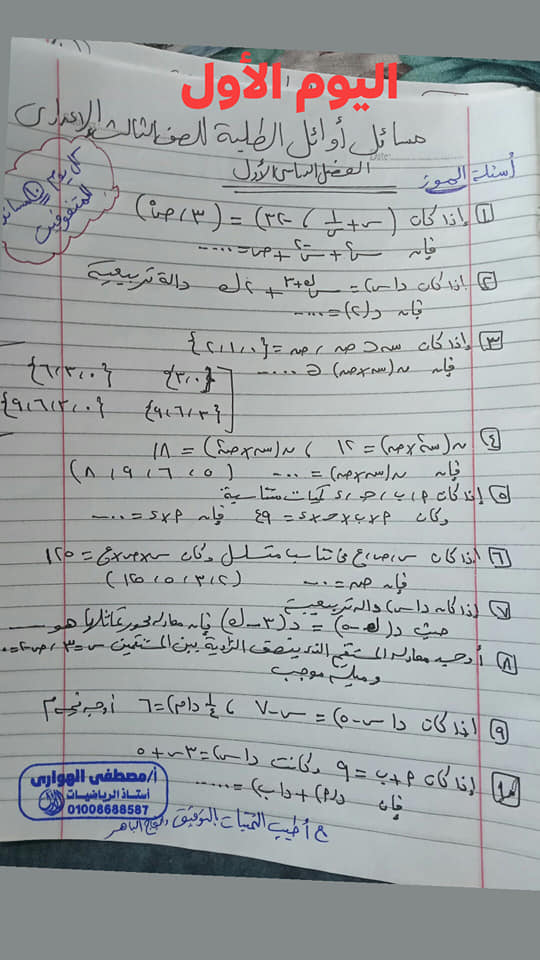 اليوم الأول
مسائل أوائل الطلبة للصف الثالث الإعدادى
Date:
الفصل الدراسى الأول
أسئلة الموز
كل يوم ١٠ مسائل
للمتفوقين
١ إذا كان (س + ١/س ، ٣٢) = (٣ ، ص٥)
فإن س٢ + س-٢ + ص = .....
٢ إذا كان د(س) = س^ك+٣ + ٢ك دالة تربيعية
فإن د(٢) = .....
٣ إذا كان س ⊂ ص ، ص = {٠،١،٢}
فإن ن(س×ص) ∈ .....
{٣،٠} {٦،٣،٠}
{٩،٦،٣} {٩،٦،٣،٠}
٤ ن(س٢×ص) = ١٢ ، ن(س×ص٢) = ١٨
فإن ن(س×ص) = .... (٥ ، ٦ ، ٩ ، ٨)
٥ إذا كان م ، ب ، ح ، ء كميات متناسبة
وكان م×ب×ح×ء = ٤٩ فإن م×ء = .....
٦ إذا كان س،ص،ع فى تناسب متسلسل وكان س×ص×ع = ١٢٥
فإن ص = .... (٢ ، ٣ ، ٥ ، ١٢٥)
٧ إذا كانه د(س) دالة تربيعية
حيث د(ك-٥) = د(٣-ك) فإن معادلة محور تماثلها هو ....
٨ أوجد معادلة المستقيم الذى ينصف الزاوية بين المستقيمين س=٣ ، ص-٢=٠
وميله موجب
٩ إذا كان د(س-٥) = س-٧ ، ١/٢ د(م) = ٦ أوجد قيمة م
١٠ إذا كان م + ب = ٩ وكانت د(س) = ٣س + ٥
فإن د(م) + د(ب) = .....
أ/مصطفى الهوارى
أستاذ الرياضيات
01008688587
مع أطيب التمنيات بالتوفيق والنجاح الباهر